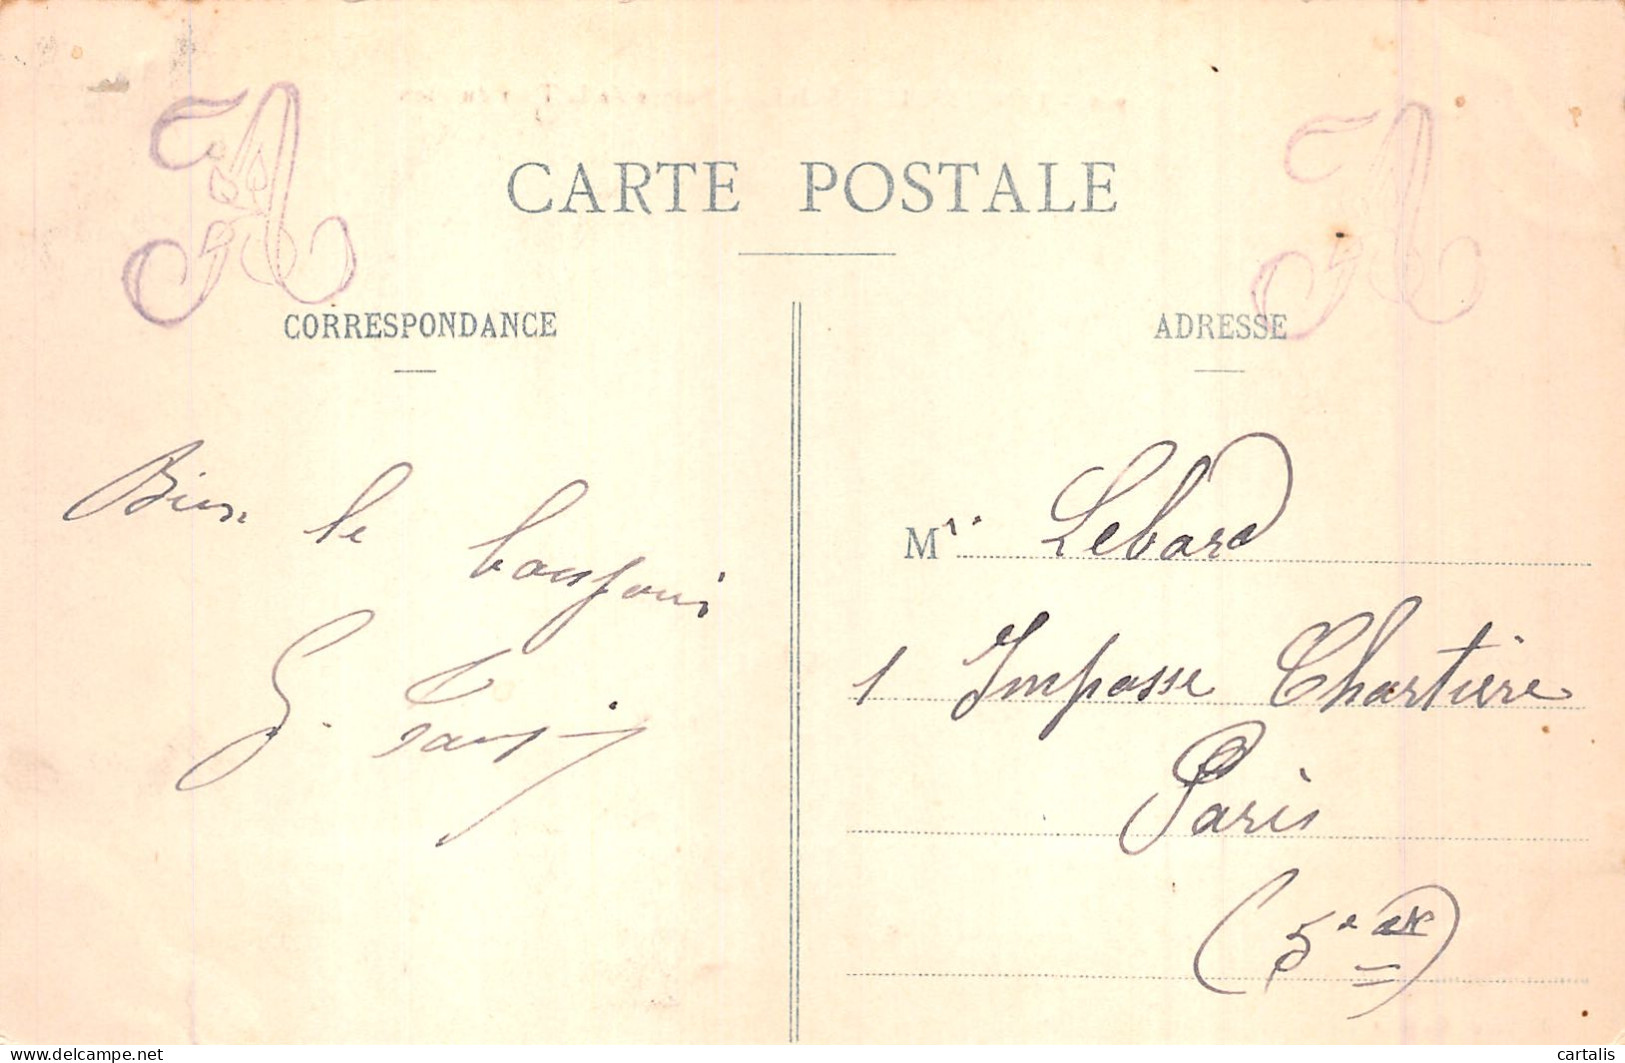 CARTE POSTALE
CORRESPONDANCE
Bien le bonjour
G.
ADRESSE
Mr. Lebard
1 Impasse Chartière
Paris
(5e arr)
delcampe.net
cartalis